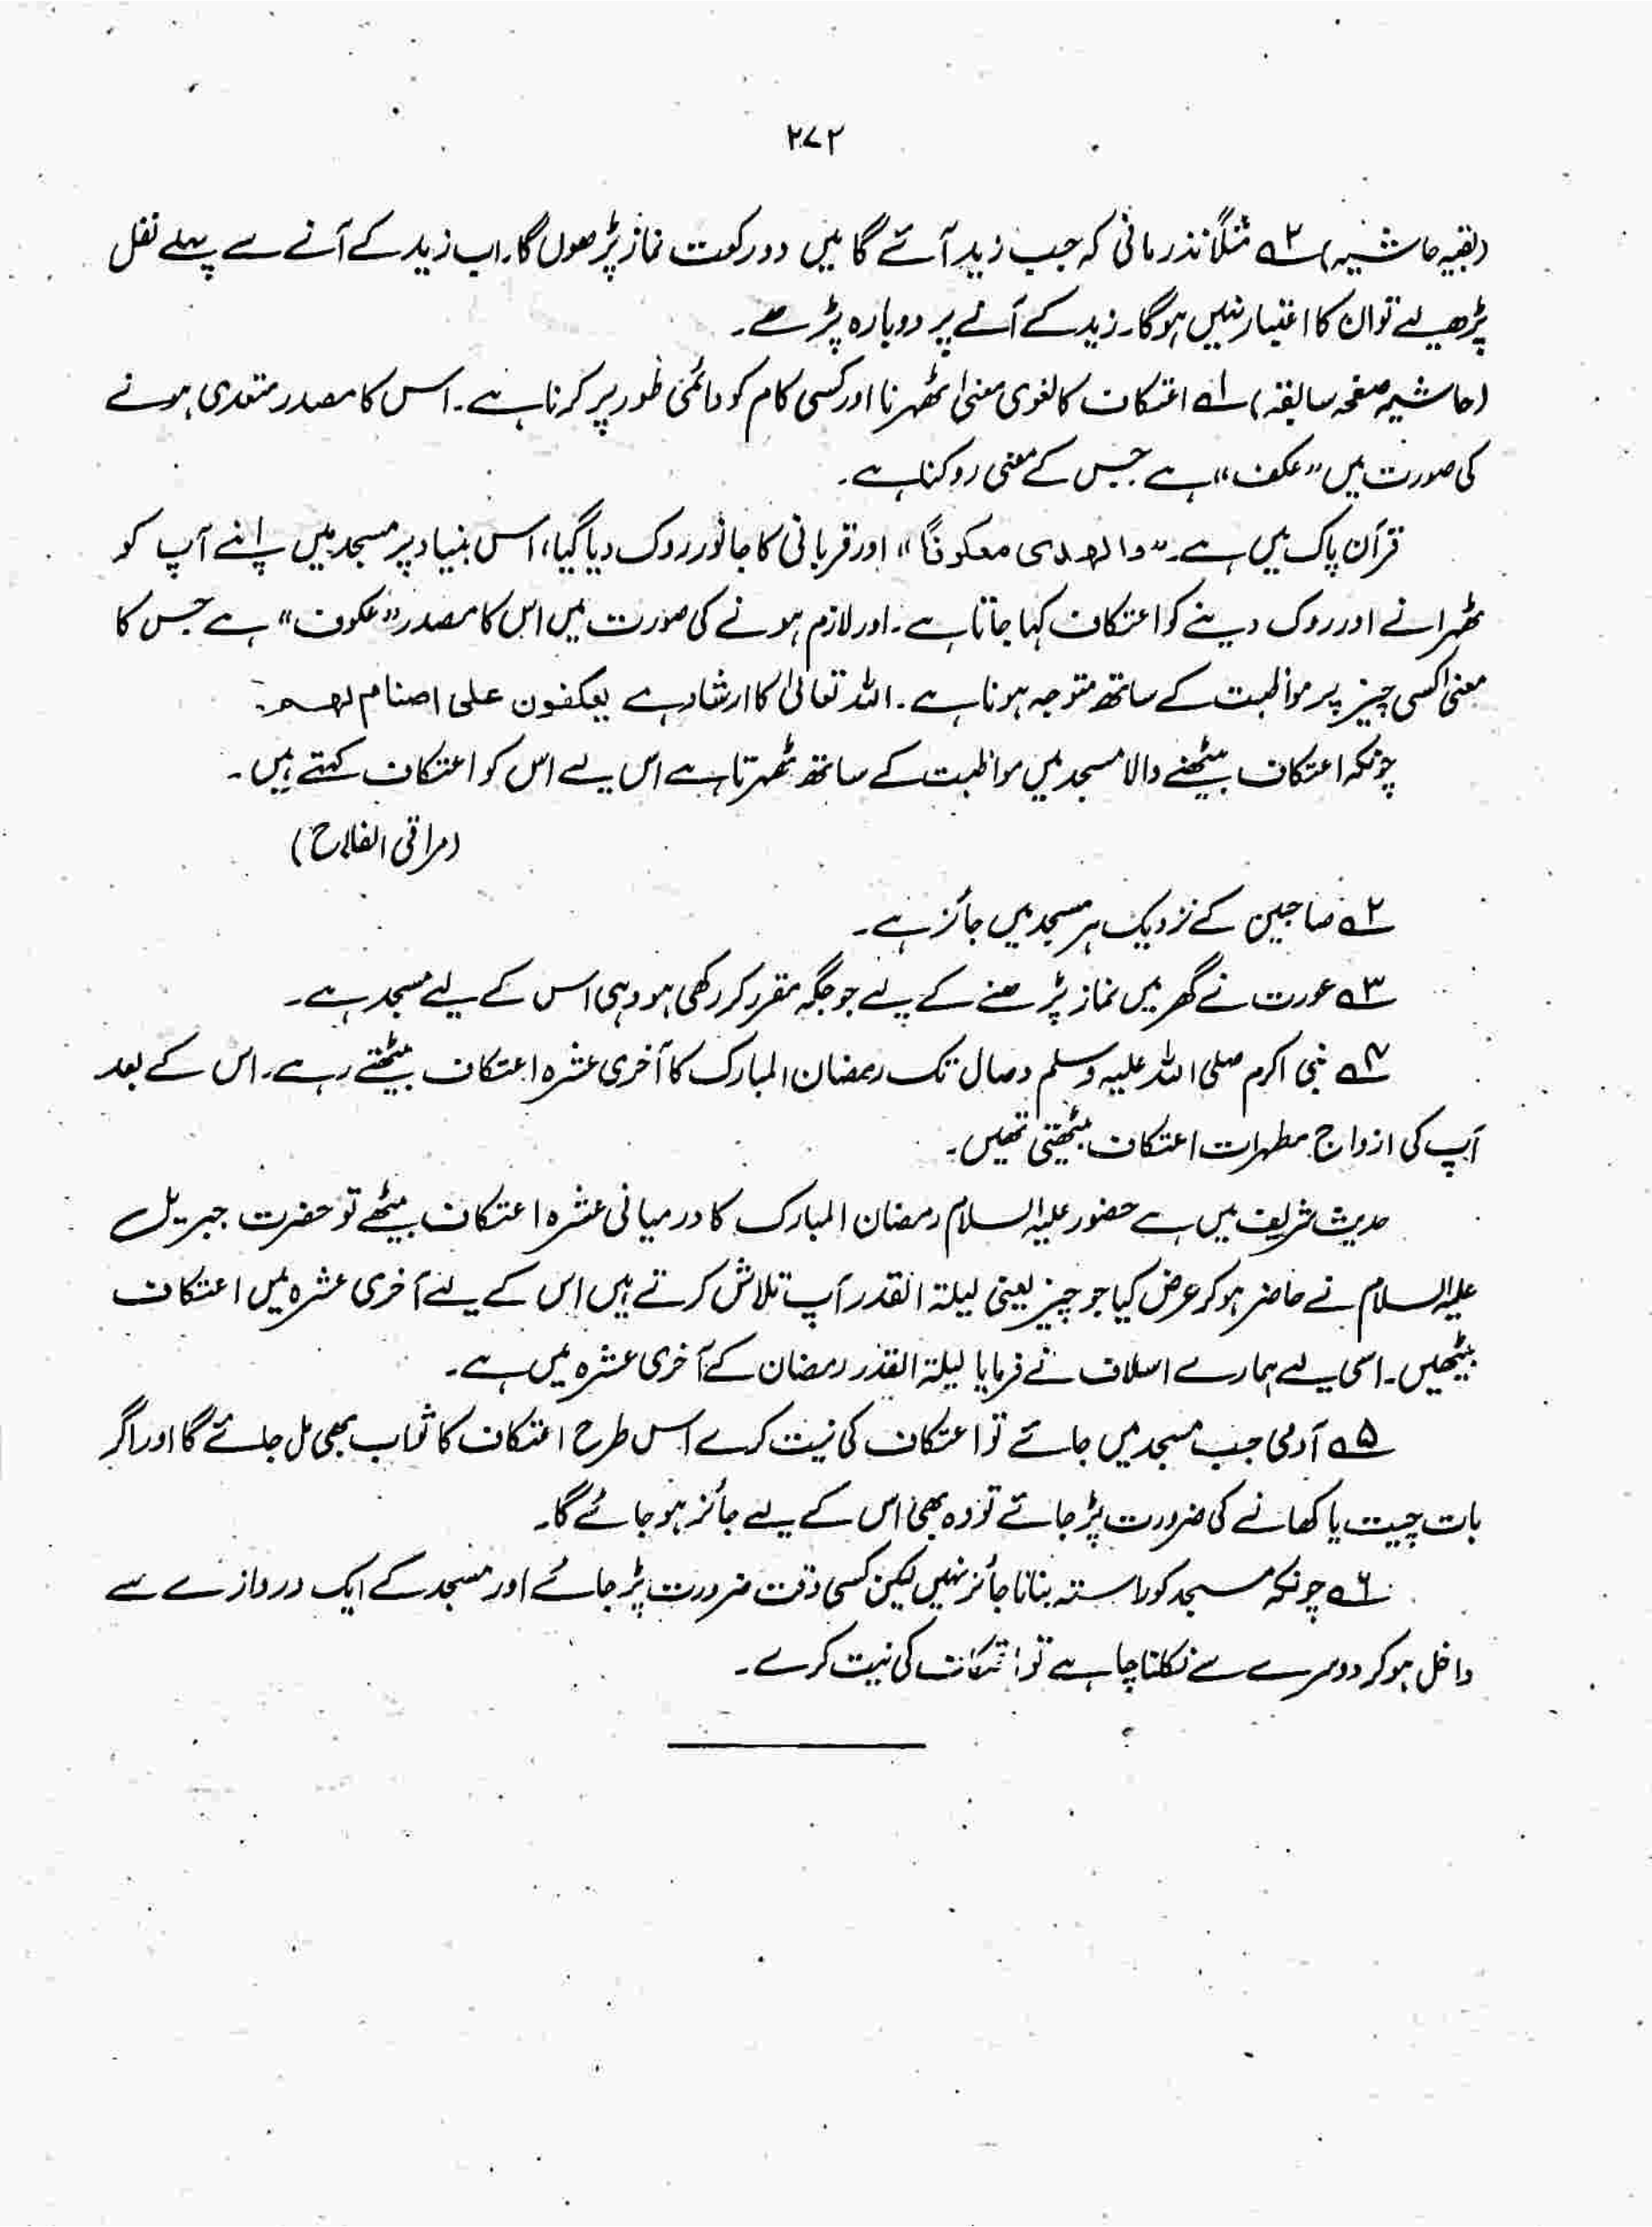 ۲۷۲
(بقیہ حاشیہ) ۳؎ مثلاً نذر مانی کہ جب زید آئے گا میں دو رکعت نماز پڑھوں گا۔ اب زید کے آنے سے پہلے نفل
پڑھ لیے تو ان کا اعتبار نہیں ہوگا۔ زید کے آنے پر دوبارہ پڑھے۔
(حاشیہ صفحہ سابقہ) ۱؎ اعتکاف کا لغوی معنیٰ ٹھہرنا اور کسی کام کو دائمی طور پر کرنا ہے۔ اس کا مصدر متعدی ہونے
کی صورت میں "عکف" ہے جس کے معنی روکنا ہے۔
قرآن پاک میں ہے۔ "والھدی معکوفاً" اور قربانی کا جانور روک دیا گیا، اس بنیاد پر مسجد میں اپنے آپ کو
ٹھہرانے اور روک دینے کو اعتکاف کہا جاتا ہے۔ اور لازم ہونے کی صورت میں اس کا مصدر "عکوف" ہے جس کا
معنیٰ کسی چیز پر مواظبت کے ساتھ متوجہ ہونا ہے۔ اللہ تعالیٰ کا ارشاد ہے یعکفون علی اصنام لھم۔
چونکہ اعتکاف بیٹھنے والا مسجد میں مواظبت کے ساتھ ٹھہرتا ہے اس لیے اس کو اعتکاف کہتے ہیں۔
(مراقی الفلاح)
۲؎ صاحبین کے نزدیک ہر مسجد میں جائز ہے۔
۳؎ عورت نے گھر میں نماز پڑھنے کے لیے جو جگہ مقرر کر رکھی ہو وہی اس کے لیے مسجد ہے۔
۴؎ نبی اکرم صلی اللہ علیہ وسلم وصال تک رمضان المبارک کا آخری عشرہ اعتکاف بیٹھتے رہے۔ اس کے بعد
آپ کی ازواج مطہرات اعتکاف بیٹھتی تھیں۔
حدیث شریف میں ہے حضور علیہ السلام رمضان المبارک کا درمیانی عشرہ اعتکاف بیٹھے تو حضرت جبریل
علیہ السلام نے حاضر ہو کر عرض کیا جو چیز یعنی لیلۃ القدر آپ تلاش کرتے ہیں اس کے لیے آخری عشرہ میں اعتکاف
بیٹھیں۔ اسی لیے ہمارے اسلاف نے فرمایا لیلۃ القدر رمضان کے آخری عشرہ میں ہے۔
۵؎ آدمی جب مسجد میں جائے تو اعتکاف کی نیت کرے اس طرح اعتکاف کا ثواب بھی مل جائے گا اور اگر
بات چیت یا کھانے کی ضرورت پڑ جائے تو وہ بھی اس کے لیے جائز ہو جائے گا۔
۶؎ چونکہ مسجد کو راستہ بنانا جائز نہیں لیکن کسی وقت ضرورت پڑ جائے اور مسجد کے ایک دروازے سے
داخل ہو کر دوسرے سے نکلنا چاہے تو اعتکاف کی نیت کرے۔